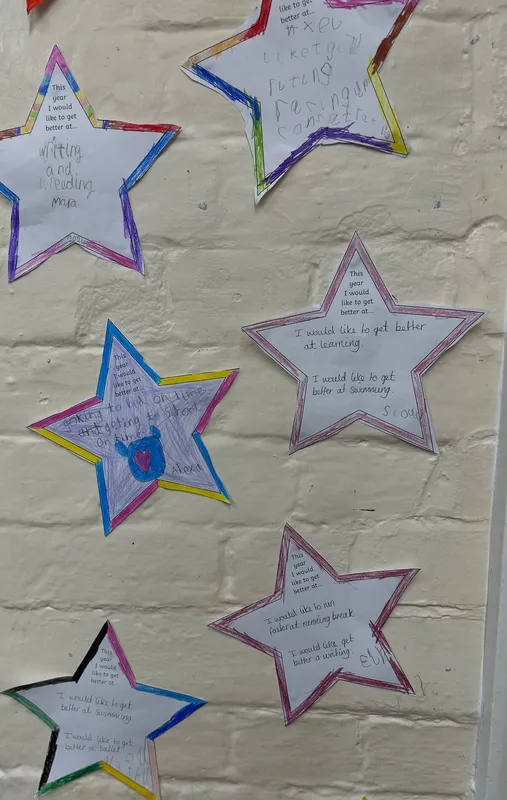 This
year
I would
like to get
better at...
writing
and
wreeding
Mara
like to get
better at...
like to get
This
year
I would
like to get
better at...
I would like to get better
at learning.
I would like to get
better at swimming.
This
year
I would
like to get
better at...
going to bed on time
and getting to school
on time
Alexa
This
year
I would
like to get
better at...
I would like to run
faster at running break
I would like get
better a writing.
This
year
I would
like to get
better at...
I would like to get
better at swimming
I would like to get
better at ballet